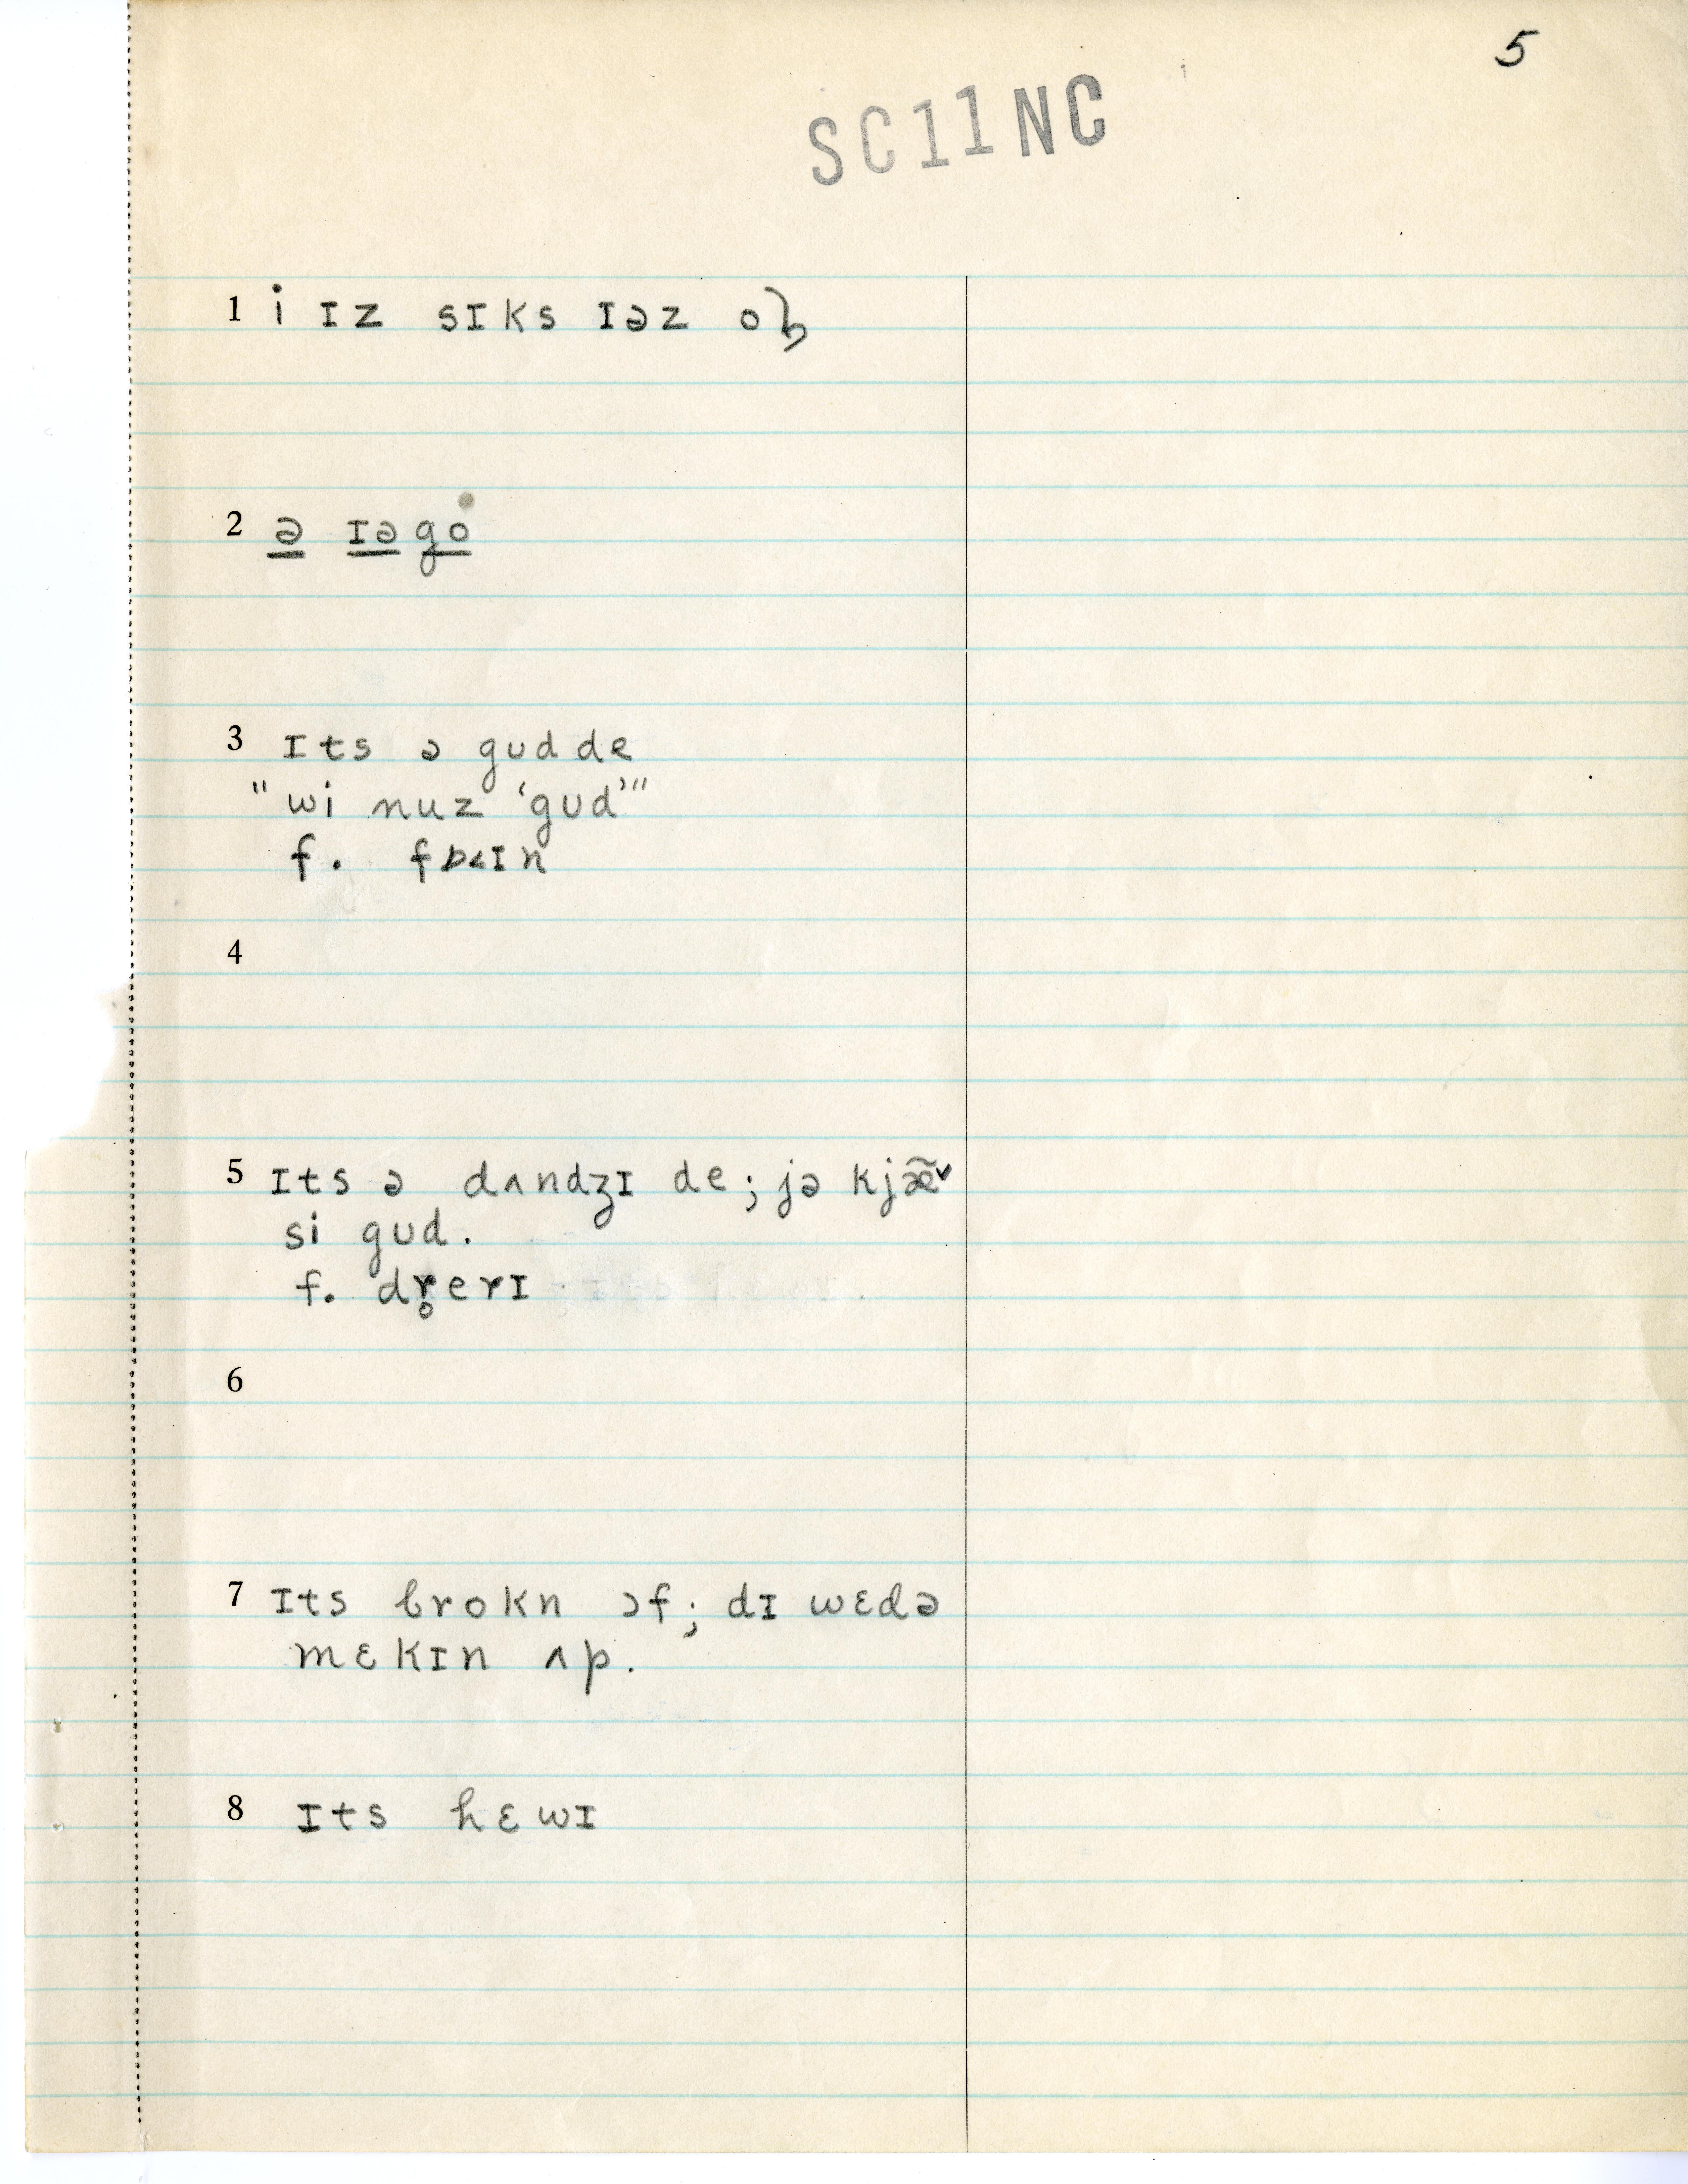 5
SC11NC
1 i ɪz sɪks ɪəz oɫ
2 ə ɪəgo
3 ɪts ə gʊd de
"wi nuz 'gʊd'"
f. fɒ˂ɪn
4
5 ɪts ə dʌndʒɪ de; jə kjæ̃˅
si gʊd.
f. dr̥erɪ
6
7 ɪts brokn ɔf; dɪ wɛdə
mɛkɪn ʌp.
8 ɪts hɛwɪ